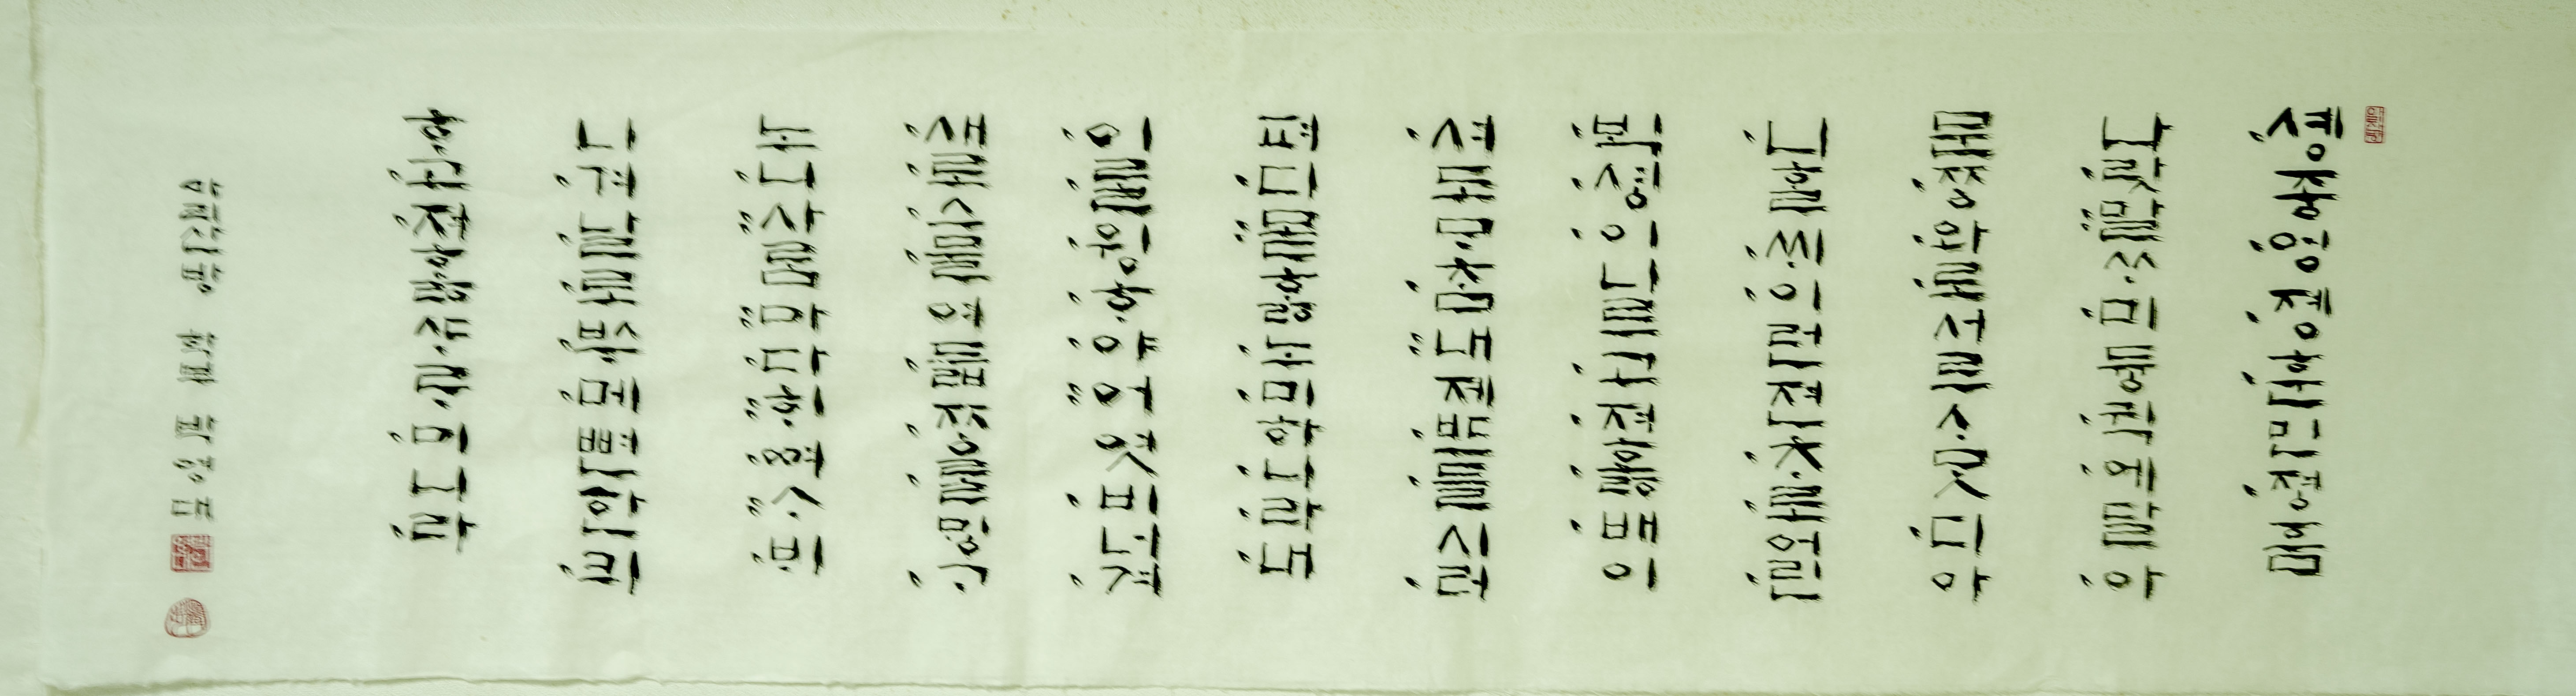 솅종엉졩훈민졍ᅙᅳᆷ
나랏말ᄊᆞ미듕귁에달아
문ᄍᆞᆼ와로서르ᄉᆞᄆᆞᆺ디아
니ᄒᆞᆯᄊᆡ이런젼ᄎᆞ로어린
ᄇᆡᆨ셩이니르고져호ᇙ배이
셔도ᄆᆞᄎᆞᆷ내제ᄠᅳ들시러
펴디몯ᄒᆞᇙ노미하니라내
이ᄅᆞᆯ윙ᄒᆞ야어엿비너겨
새로스믈여듧ᄍᆞᆼᄅᆞᆯᄆᆡᇰᄀᆞ
노니사ᄅᆞᆷ마다ᄒᆡᅇᅧ수ᄫᅵ
니겨날로ᄡᅮ메뼌한킈
ᄒᆞ고져ᄒᆞᇙᄯᆞᄅᆞ미니라
박영도